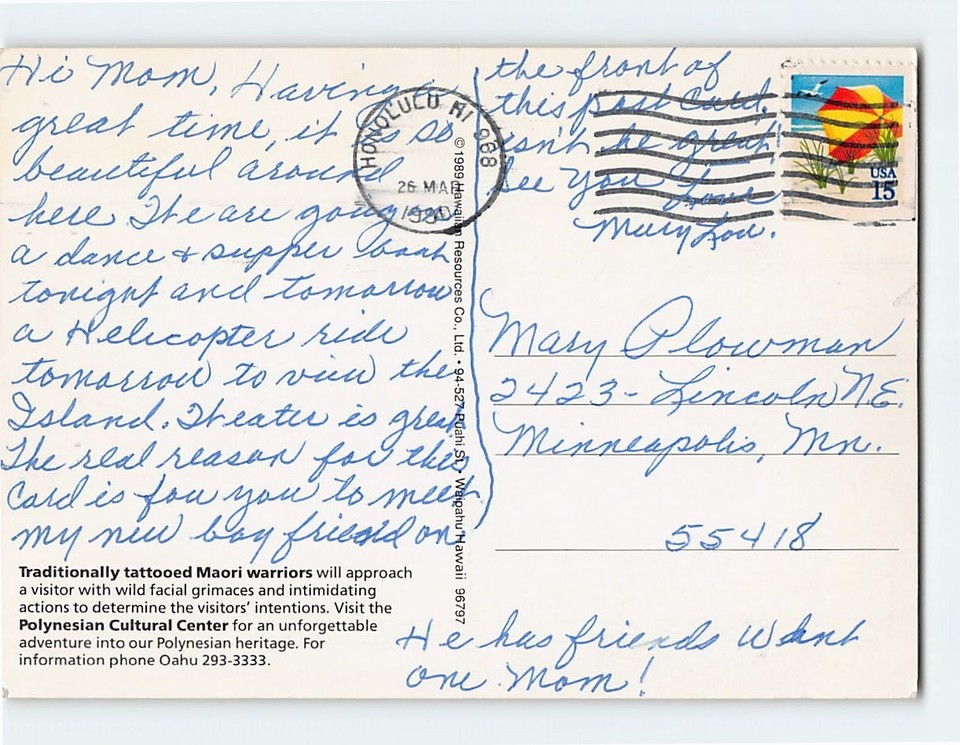 Hi Mom, Having a
great time, it is so
beautiful around
here We are going
a dance & supper boat
tonight and tomorrow
a Helicopter ride
tomorrow to view the
Island. Weater is great
The real reason for this
Card is fou you to meet
my new boy friend on
the front of
this post Card.
isn't he great
See you Love
Mary Lou.
HONOLULU HI 968
26 MAR
1990
USA
15
© 1989 Hawaiian Resources Co., Ltd. • 94-527 Puahi St. • Waipahu Hawaii 96797
Mary Plowman
2423 - Lincoln N.E.
Minneapolis, Mn.
55418
Traditionally tattooed Maori warriors will approach
a visitor with wild facial grimaces and intimidating
actions to determine the visitors' intentions. Visit the
Polynesian Cultural Center for an unforgettable
adventure into our Polynesian heritage. For
information phone Oahu 293-3333.
He has friends want
one Mom!